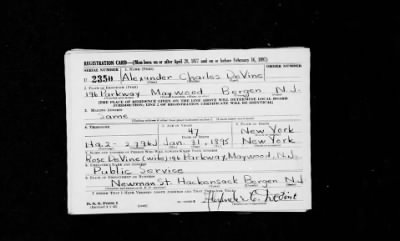 REGISTRATION CARD—(Men born on or after April 28, 1877 and on or before February 16, 1897)
SERIAL NUMBER 1. NAME (Print) ORDER NUMBER
U 2350 Alexander Charles DeVine
2. PLACE OF RESIDENCE (Print)
196 Parkway Maywood Bergen N.J.
[THE PLACE OF RESIDENCE GIVEN ON THE LINE ABOVE WILL DETERMINE LOCAL BOARD
JURISDICTION; LINE 2 OF REGISTRATION CERTIFICATE WILL BE IDENTICAL]
3. MAILING ADDRESS
Same
4. TELEPHONE 5. AGE IN YEARS 6. PLACE OF BIRTH
47 New York
DATE OF BIRTH
Ha.2-2796J Jan. 31, 1895 New York
7. NAME AND ADDRESS OF PERSON WHO WILL ALWAYS KNOW YOUR ADDRESS
Rose DeVine (wife) 196 Parkway, Maywood, N.J.
8. EMPLOYER'S NAME AND ADDRESS
Public Service
9. PLACE OF EMPLOYMENT OR BUSINESS
Newman St. Hackensack Bergen N.J.
I AFFIRM THAT I HAVE VERIFIED ABOVE ANSWERS AND THAT THEY ARE TRUE.
D. S. S. Form 1
Alexander C. DeVine